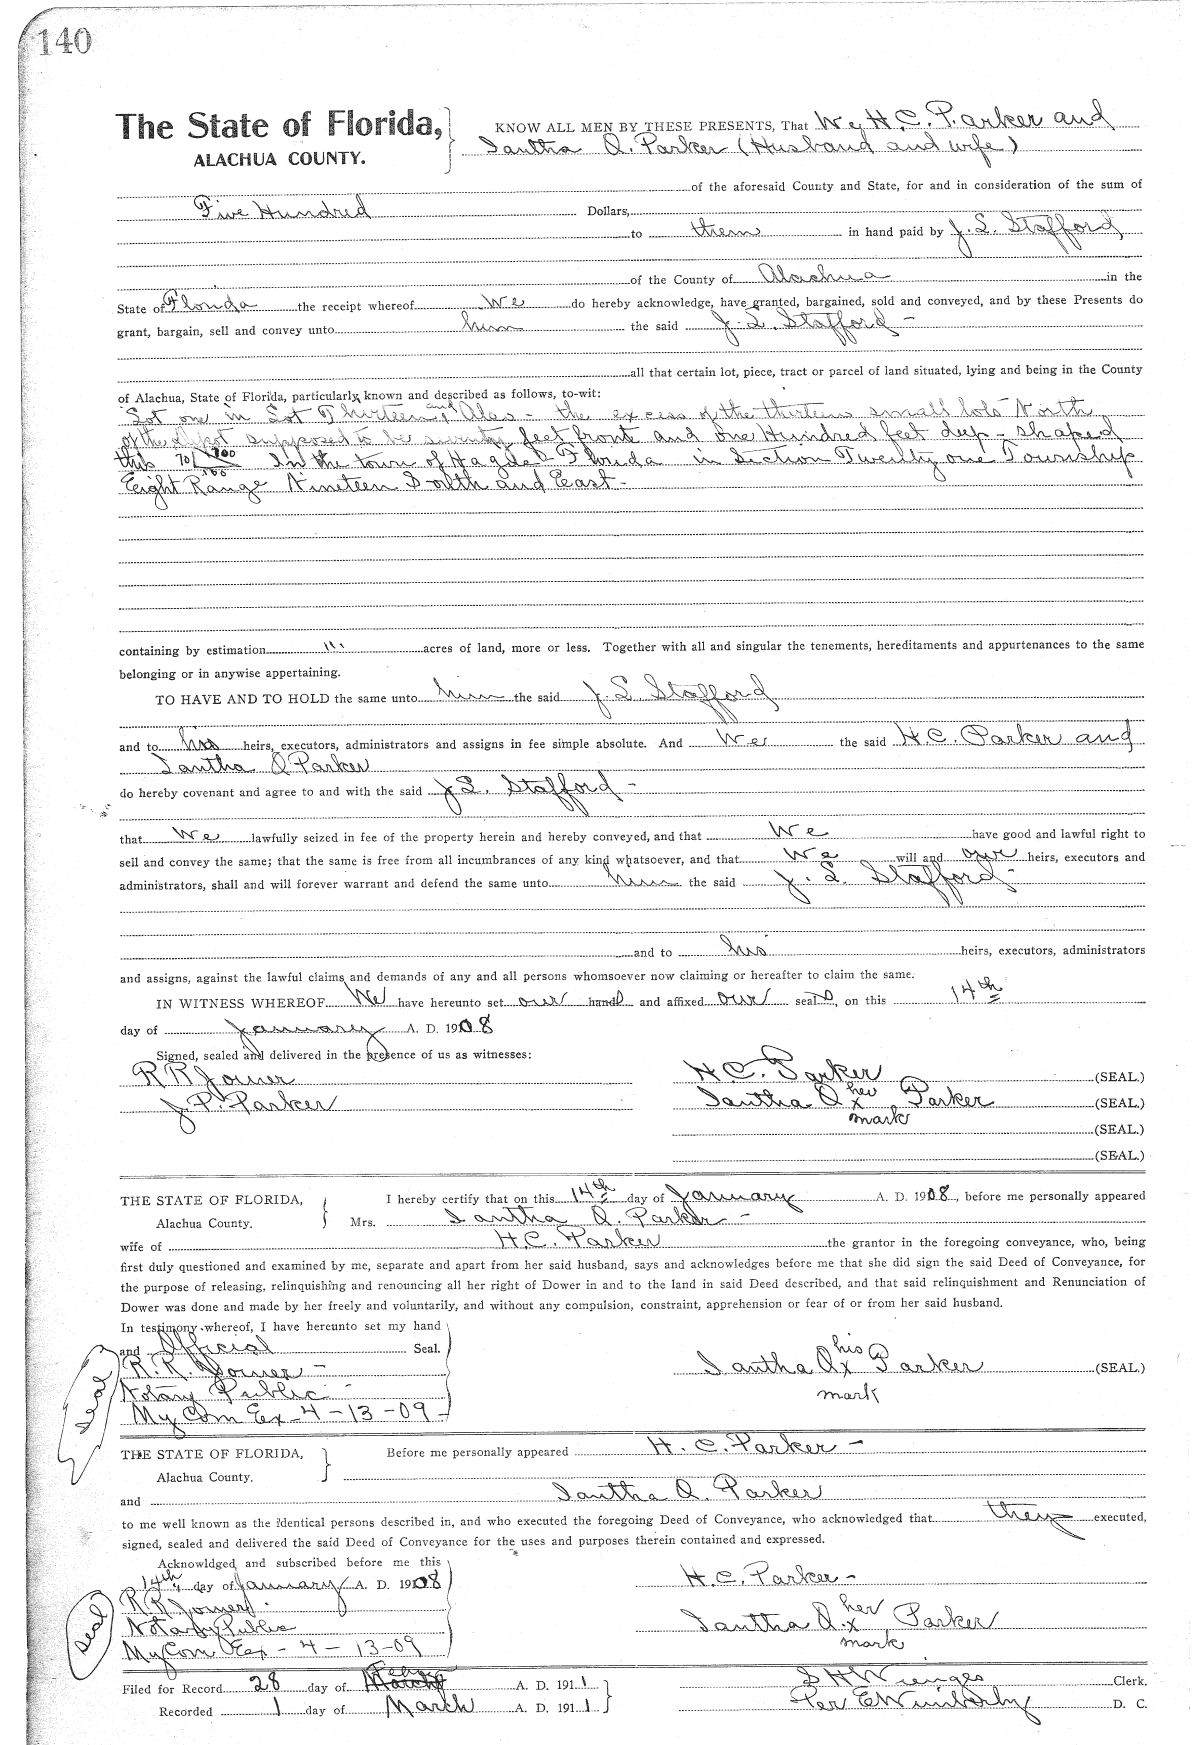 140
The State of Florida,
ALACHUA COUNTY.
KNOW ALL MEN BY THESE PRESENTS, That We H. C. Parker and
Iantha O. Parker (Husband and wife)
of the aforesaid County and State, for and in consideration of the sum of
Five Hundred Dollars,
to them in hand paid by J. L. Stafford
of the County of Alachua in the
State of Florida the receipt whereof We do hereby acknowledge, have granted, bargained, sold and conveyed, and by these Presents do
grant, bargain, sell and convey unto him the said J. L. Stafford -
all that certain lot, piece, tract or parcel of land situated, lying and being in the County
of Alachua, State of Florida, particularly known and described as follows, to-wit:
Lot one in Lot Thirteen and Also - the excess of the thirteen small lots North
of the depot supposed to be seventy feet front and one Hundred feet deep - shaped
this 70 100 100 In the town of Hague Florida in Section Twenty one Township
Eight Range Nineteen South and East -
containing by estimation acres of land, more or less. Together with all and singular the tenements, hereditaments and appurtenances to the same
belonging or in anywise appertaining.
TO HAVE AND TO HOLD the same unto him the said J. L. Stafford
and to his heirs, executors, administrators and assigns in fee simple absolute. And We the said H. C. Parker and
Iantha O Parker
do hereby covenant and agree to and with the said J L. Stafford -
that We lawfully seized in fee of the property herein and hereby conveyed, and that We have good and lawful right to
sell and convey the same; that the same is free from all incumbrances of any kind whatsoever, and that We will and our heirs, executors and
administrators, shall and will forever warrant and defend the same unto him the said J. L. Stafford -
and to his heirs, executors, administrators
and assigns, against the lawful claims and demands of any and all persons whomsoever now claiming or hereafter to claim the same.
IN WITNESS WHEREOF We have hereunto set our hands and affixed our seals, on this 14th
day of January A. D. 1908
Signed, sealed and delivered in the presence of us as witnesses:
R R Jomer
J. P. Parker
H. C. Parker (SEAL.)
Iantha O her x Parker (SEAL.)
mark
(SEAL.)
(SEAL.)
THE STATE OF FLORIDA,
Alachua County.
I hereby certify that on this 14th day of January A. D. 1908, before me personally appeared
Mrs. Iantha O. Parker -
wife of H. C. Parker the grantor in the foregoing conveyance, who, being
first duly questioned and examined by me, separate and apart from her said husband, says and acknowledges before me that she did sign the said Deed of Conveyance, for
the purpose of releasing, relinquishing and renouncing all her right of Dower in and to the land in said Deed described, and that said relinquishment and Renunciation of
Dower was done and made by her freely and voluntarily, and without any compulsion, constraint, apprehension or fear of or from her said husband.
In testimony whereof, I have hereunto set my hand
and Official Seal.
R. R. Jomer -
Notary Public -
My Com Ex - 4 - 13 - 09 -
Seal
Iantha O his x Parker (SEAL.)
mark
THE STATE OF FLORIDA,
Alachua County.
Before me personally appeared H. C. Parker -
and Iantha O. Parker
to me well known as the identical persons described in, and who executed the foregoing Deed of Conveyance, who acknowledged that they executed,
signed, sealed and delivered the said Deed of Conveyance for the uses and purposes therein contained and expressed.
Acknowldged and subscribed before me this
14th day of January A. D. 1908
R R Jomer
Notary Public
My Com Ex - 4 - 13 - 09
Seal
H. C. Parker -
Iantha O. her x Parker
mark
Filed for Record 28 day of Feby A. D. 1911
Recorded 1 day of March A. D. 1911
S H Wienges Clerk.
Per E Wimberly D. C.